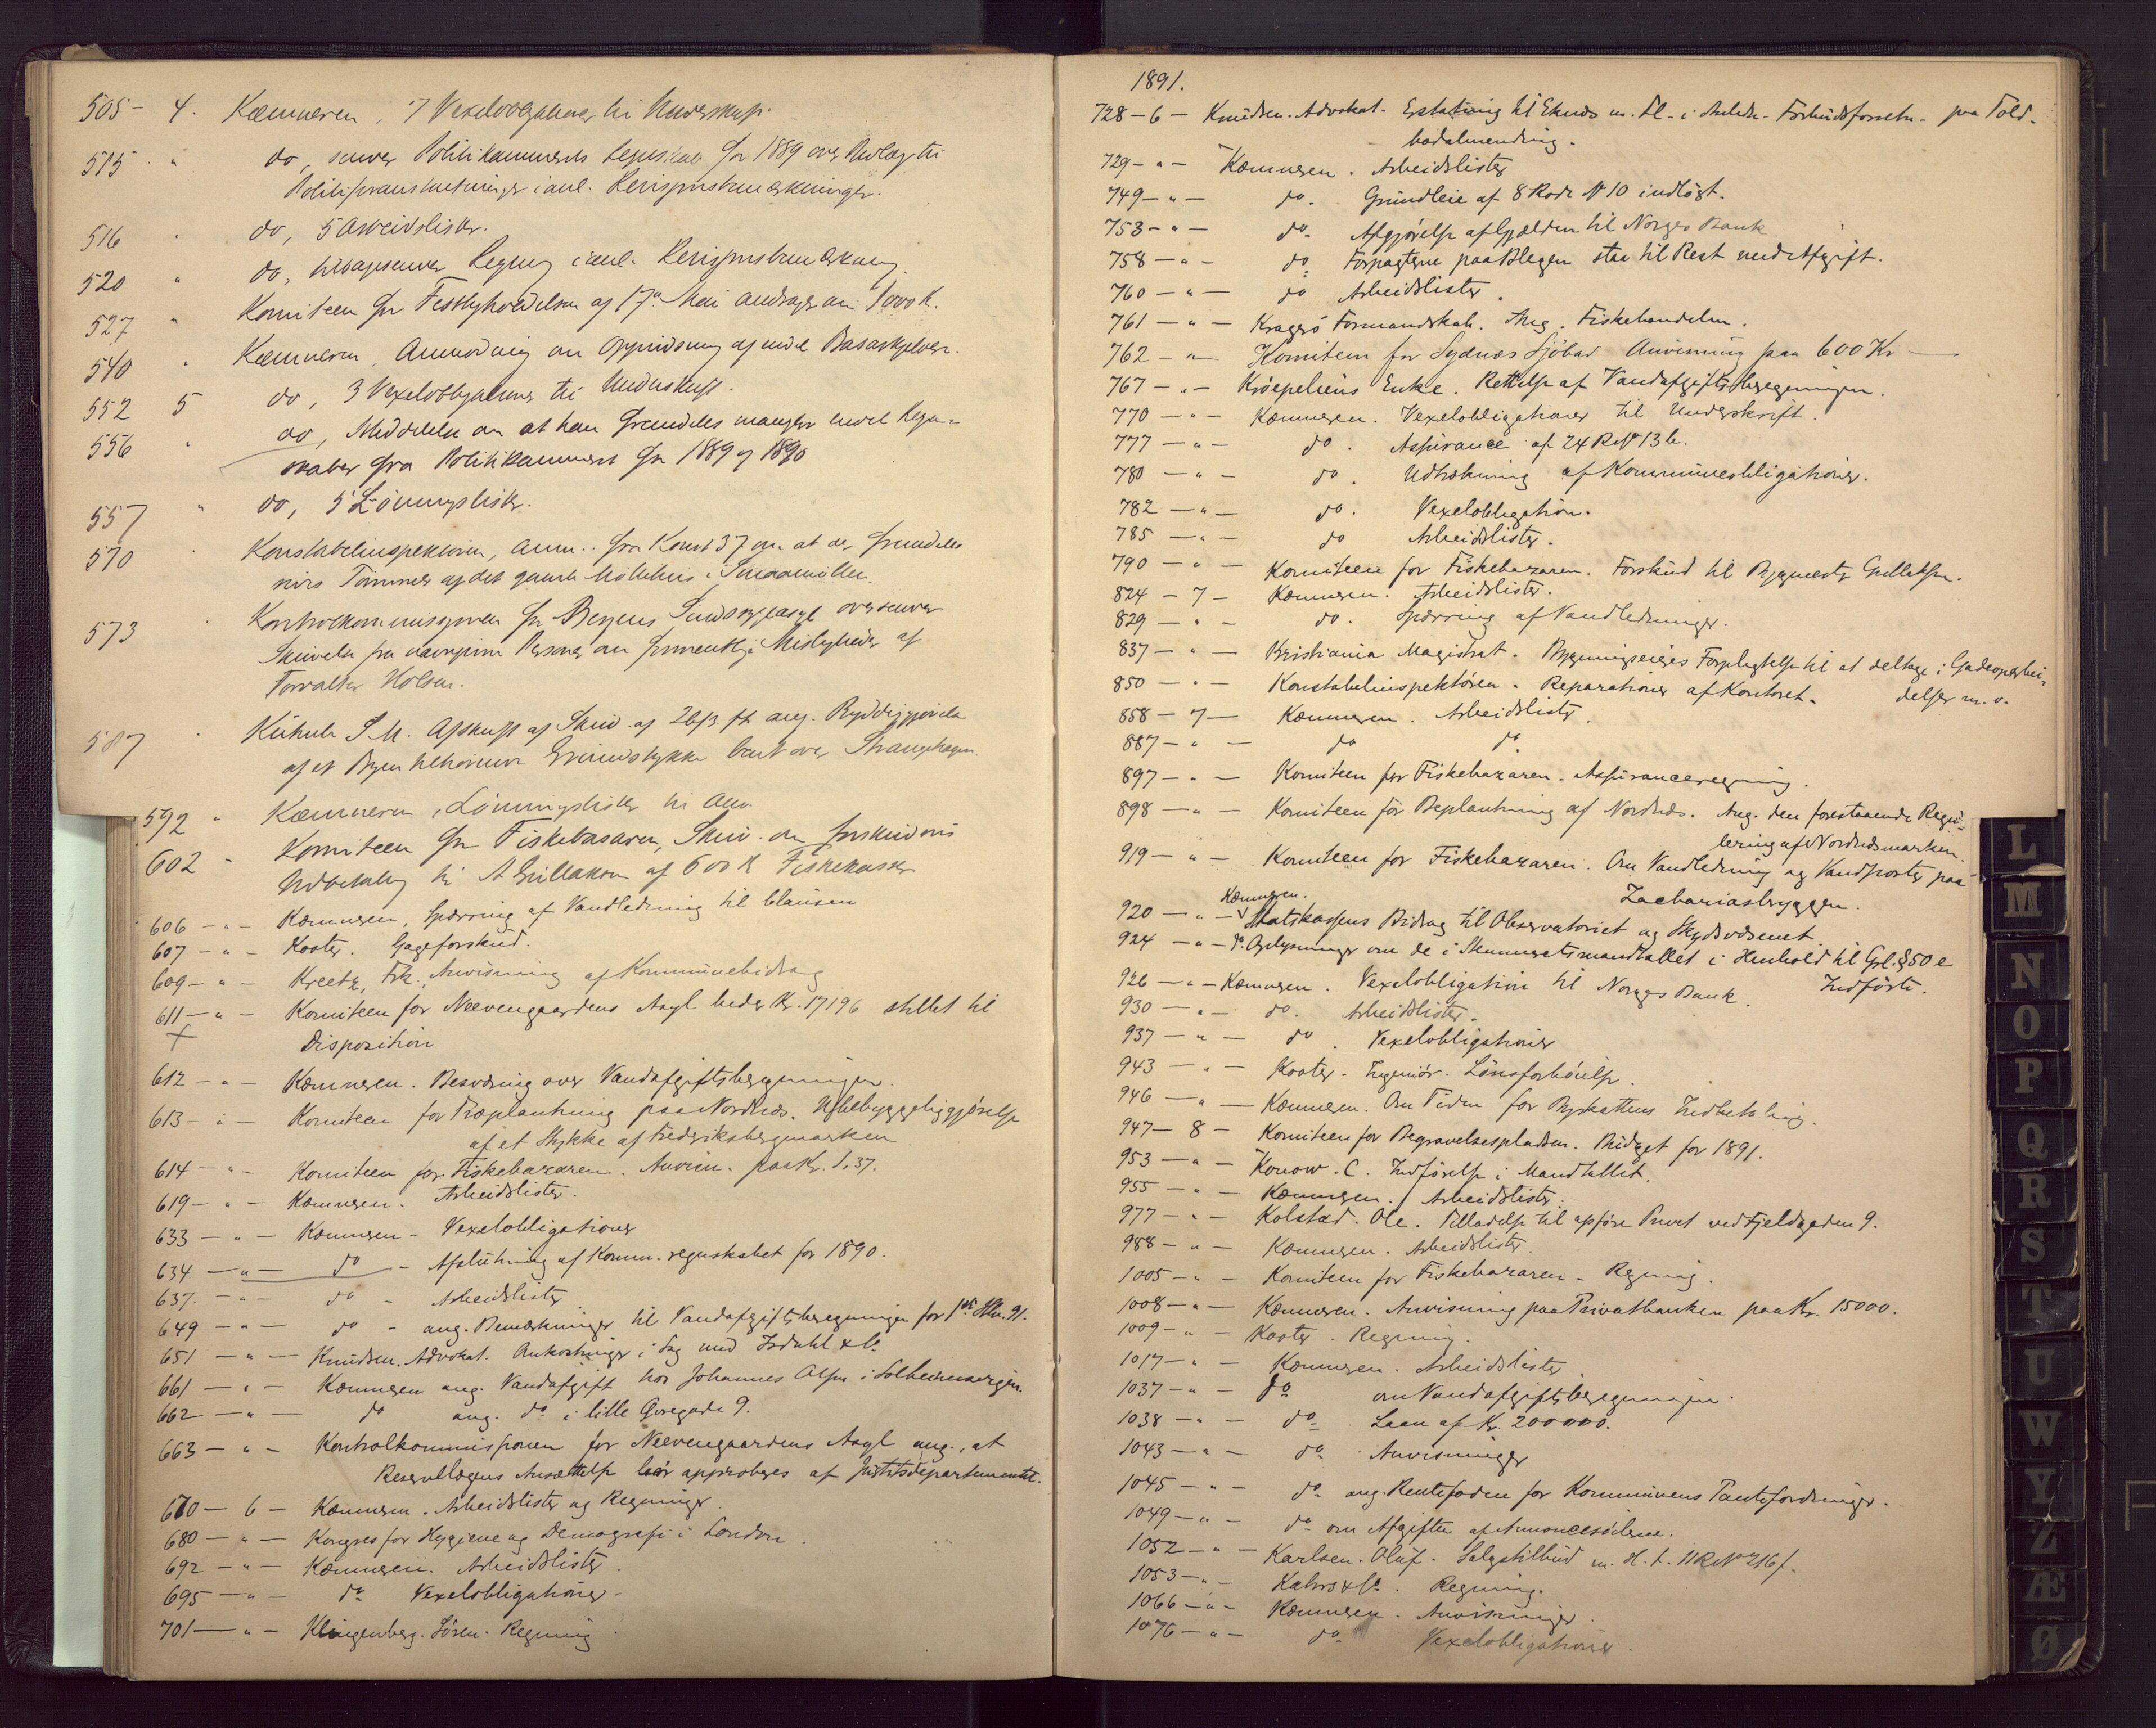 505 - 4. Kæmneren, 7 Vexelobligationer til Underskrift.
515 " do, sender Politikammerets Regnskab for 1889 over Udlæg til
Politiforanstaltninger i anl. Revisjonsbemærkninger.
516 " do, 5 Arbeidslister.
520 " do, tilbagesender Regning i anl. Revisjonsbemærkning.
527 " Komiteen for Festligholdelsen af 17de Mai andrager om 1000 K.
540 " Kæmneren, Anmodning om Oppudsning af endel Basarkjeldere.
552 5 do, 3 Vexelobligationer til Underskrift.
556 " do, Meddelelse om at han fremdeles mangler endel Regn-
skaber fra Politikammeret for 1889 og 1890
557 " do, 5 Lønningslister.
570 " Konstabelinspektøren, Anm. fra Konst 37 om at der fremdeles
Tømmer af det gamle Møllehus i Smaamøllen.
573 " Kontrolkommissjonen for Bergens Sindssygeasyl oversender
Skrivelse fra Personer om formentlige Misligheder af
Forvalter Holsen.
587 " Kühnle S. M. Afskrift af Skriv. af 26/3 ft. ang. Ryddiggjørelse
af et Byen tilhørende Grundstykke bent over Strangehagen.
592 " Kæmneren, Lønningslister til Anv.
602 " Komiteen for Fiskebasaren, Skriv. om forskudvis
Udbetaling til A Gullaksen af 600 K Fiskekasser
606 - " - Kæmneren, Spærring af Vandledning til Clausen
607 - " - Koster. Gageforskud.
609 - " - Kreetz, Frk., Anvisning af Kommunebidrag
611 - " - Komiteen for Neevengaardens Asyl beder Kr. 17196 stillet til
+ Disposition
612 - " - Kæmneren. Besværing over Vandafgiftsberegningen.
613 - " - Komiteen for Træplantning paa Nordnæs. Ubebyggeliggjørelse
af et Stykke af Frederiksbergmarken
614 - " - Komiteen for Fiskebazaren. Anvisn. paa Kr. 1,37.
619 - " - Kæmneren. Arbeidslister.
633 - " - Kæmneren - Vexelobligationer
634 - " - do - Afslutning af Komm. regnskabet for 1890.
637. - " - do - Arbeidslister
649 - " - do - ang. Bemærkninger til Vandafgiftsberegningen for 1ste Hlv. 91.
651 - " - Knudsen. Advokat. Omkostninger i Sag med Isdahl & Co
661 - " - Kæmneren ang. Vandafgift hos Johannes Olsen i Solheimsvergen.
662 - " - do ang. do i lille Øvregade 9.
663 - " - Kontrolkommissionen for Neevengaardens Asyl ang., at
Reservelægens Ansættelse bør approberes af Justitsdepartementet.
670 - 6 - Kæmneren. Arbeidslister og Regninger.
680 - " - Kongres for Hygiene og Demografi i London.
692 - " - Kæmneren. Arbeidslister.
695 - " - do Vexelobligationer -
701 - " - Klingenberg. Sören. Regning
1891.
728 - 6 - Knudsen. Advokat. Erstatning til m. Fl. i Forbudsforretn. paa Told-
bodalmending.
729 - " - Kæmneren. Arbeidslister
749 - " - do. Grundleie af 8 Rode No 10 indløst.
753 - " - do. Afgjørelse af Gjælden til Norges Bank
758 - " - do. Forpagterne paa Blegen staa til Rest med Afgift.
760 - " - do Arbeidslister.
761 - " - Kragerö Formandskab. Ang. Fiskehandelen.
762 - " - Komiteen for Sydnæs Sjöbad Anvisning paa 600 Kr -
767 - " - Kröepeliens Enke. Rettelse af Vandafgiftsberegningen.
770 - " - Kæmneren. Vexelobligationer til Underskrift.
777 - " - do. Assurance af 24 R No 13 b.
780 - " - do. Udtrækning af Kommuneobligationer.
782 - " - do. Vexelobligation.
785 - " - do Arbeidslister.
790 - " - Komiteen for Fiskebazaren. Forskud til Bygmester Gullaksen.
824 - 7 - Kæmneren. Arbeidslister.
829 - " - do. Spærring af Vandledninger.
837 - " - Kristiania Magistrat. Bygningseieres Forpligtelse til at deltage i Gadeoparbei-
850 - " - Konstabelinspektøren. Reparationer af Kontoret. delser m. v.
858 - 7 - Kæmneren. Arbeidslister.
887 - " - do do
897 - " - Komiteen for Fiskebazaren. Assuranceregning.
898 - " - Komiteen for Beplantning af Nordnæs. Ang. den forestaaende Regu-
lering af Nordnæsmarken.
919 - " - Komiteen for Fiskebazaren. Om Vandledning og Vandposter paa
Zachariasbryggen.
Kæmneren.
920 - " - Statskassens Bidrag til Observatoriet og Skydsvæsenet.
924 - " - do. Oplysninger om de i Stemmeretsmandtallet i Henhold til Grl. § 50 e
Indførte.
926 - " - Kæmneren. Vexelobligation til Norges Bank.
930 - " - do. Arbeidslister.
937 - " - do. Vexelobligationer
943 - " - Koster. Ingeniör. Lönsforhöielse.
946 - " - Kæmneren. Om Tiden for Byskattens Indbetaling.
947 - 8 - Komiteen for Begravelsespladsen. Budget for 1891.
953 - " - Konow. C. Indførelse i Mandtallet.
955 - " - Kæmneren. Arbeidslister.
977 - " - Kolstad. Ole. Tilladelse til opføre Privet ved Fjeldgaden 9.
988 - " - Kæmneren. Arbeidslister.
1005 - " - Komiteen for Fiskebazaren - Regning.
1008 - " - Kæmneren. Anvisning paa Privatbanken paa Kr. 15000.
1009 - " - Koster. Regning.
1017 - " - Kæmneren. Arbeidslister
1037 - " - do om Vandafgiftsberegningen.
1038 - " - do Laan af Kr. 200000.
1043 - " - do Anvisninger
1045 - " - do ang. Rentefoden for Kommunens Pantefordringer.
1049 - " - do om Afgiften af Annoncesöilerne.
1052 - " - Karlsen. Oluf. Salgstilbud m. H. t. 11 R No 216 f.
1053 - " - Kahrs & Co. Regning.
1066 - " - Kæmneren. Anvisninger.
1076 - " - do Vexelobligationer.
L
M
N
O
P
Q
R
S
T
U
W
Y
Z
Æ
Ø